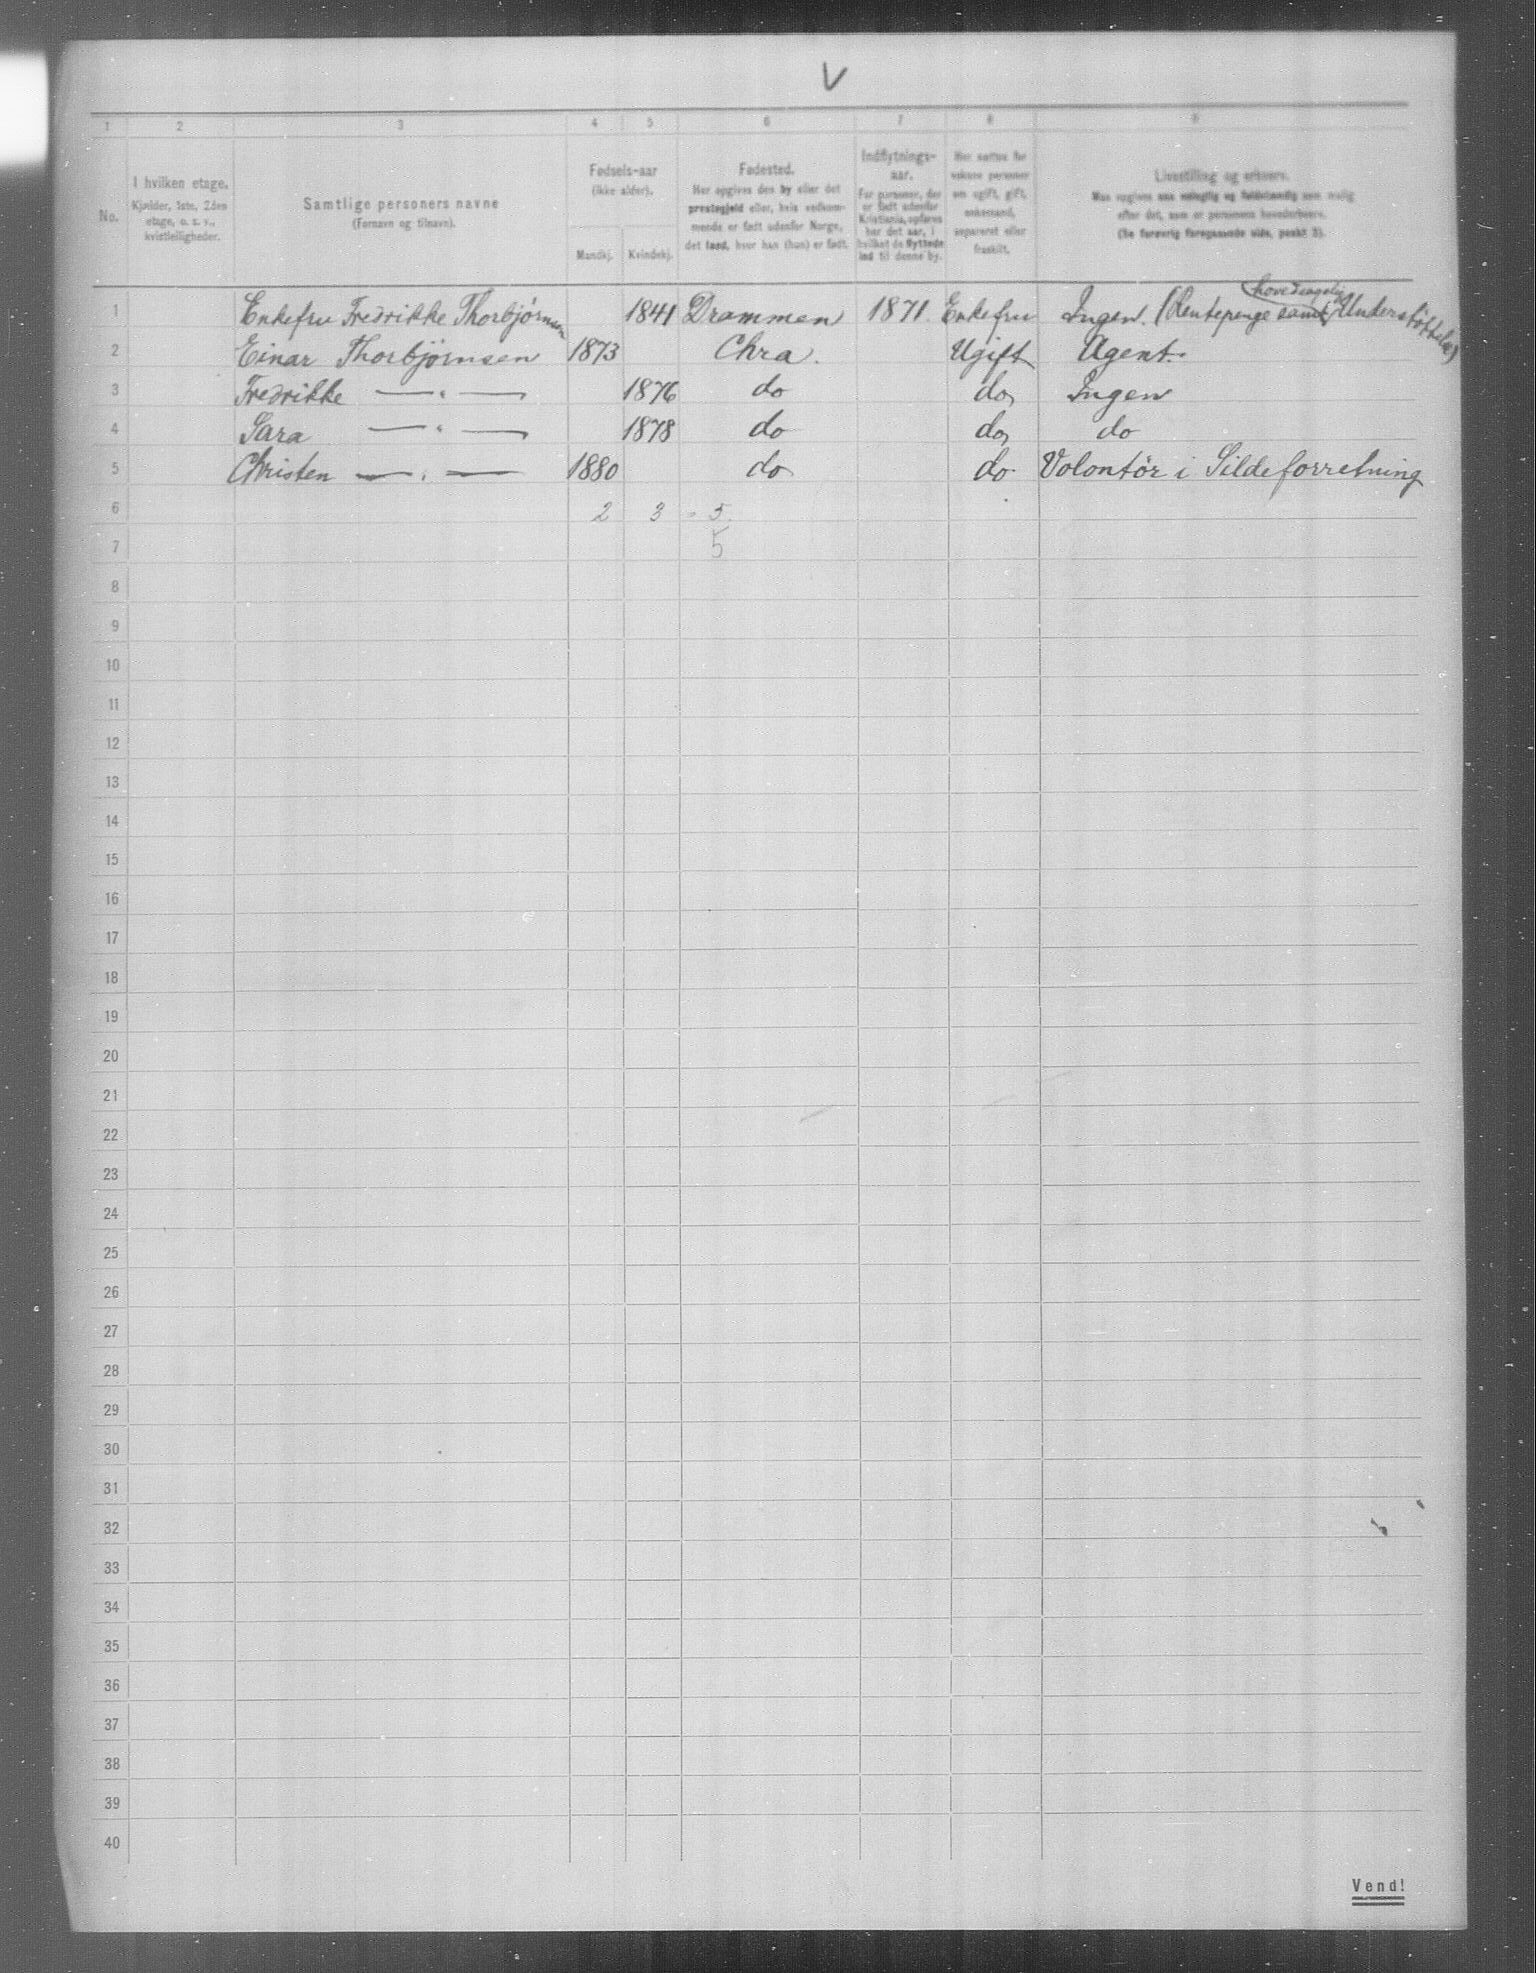 V
1 2 3 4 5 6 7 8 9
No.
I hvilken etage.
Kjælder, 1ste, 2den
etage, o. s. v.,
kvistleiligheder.
Samtlige personers navne
(Fornavn og tilnavn).
Fødsels-aar
(ikke alder).
Mandkj. Kvindekj.
Fødested.
Her opgives den by eller det
prestegjeld eller, hvis vedkom-
mende er født udenfor Norge,
det land, hvor han (hun) er født.
Indflytnings-
aar.
For personer, der
er født udenfor
Kristiania, opføres
her det aar, i
hvilket de flyttede
ind til denne by.
Her sættes for
voksne personer
om ugift, gift,
enkemand,
separeret eller
fraskilt.
Livsstilling og erhverv.
Man opgives saa nøiagtig og fuldstændig som mulig
efter det, som er personens hovederhverv.
(Se forøvrig foregaaende side, punkt 3).
hovedsagelig
1 Enkefru Fredrikke Thorbjørnsen 1841 Drammen 1871. Enkefru Ingen. (Rentepenge samt Understøttelse)
2 Einar Thorbjørnsen 1873 Chra. Ugift Agent.
3 Fredrikke — " — 1876 do do, Ingen
4 Sara — " — 1878 do do, do
5 Christen — " — 1880 do do. Volontør i Sildeforretning
6 2 3 = 5.
7 5
8
9
10
11
12
13
14
15
16
17
18
19
20
21
22
23
24
25
26
27
28
29
30
31
32
33
34
35
36
37
38
39
40
Vend!